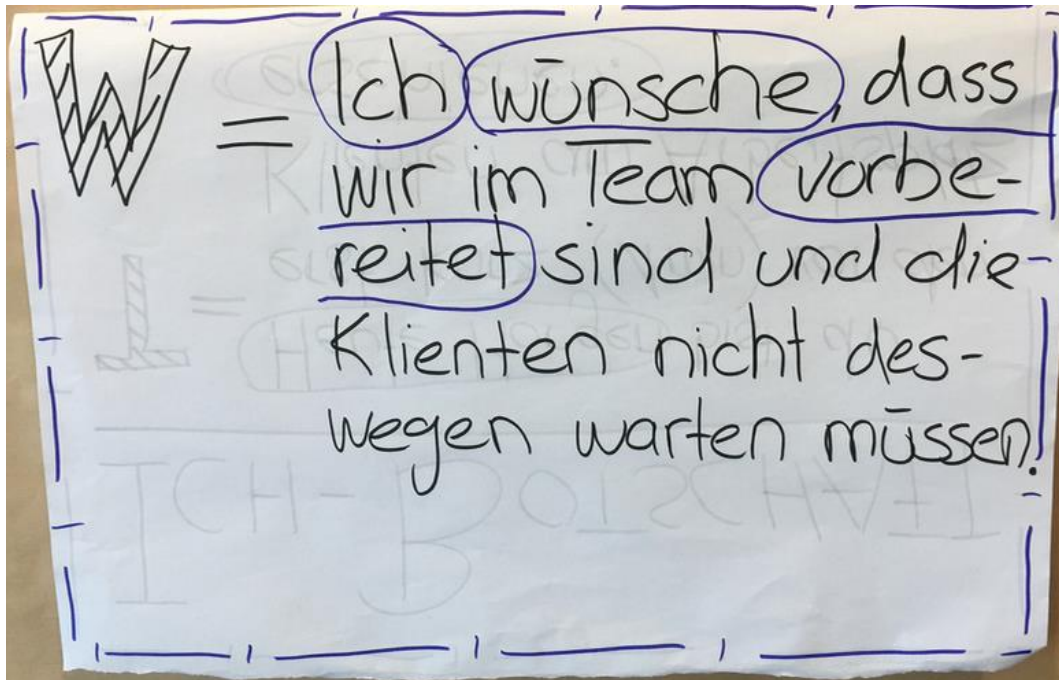 W = Ich wünsche, dass
wir im Team vorbe-
reitet sind und die
Klienten nicht des-
wegen warten müssen.
ICH-BOTSCHAFT